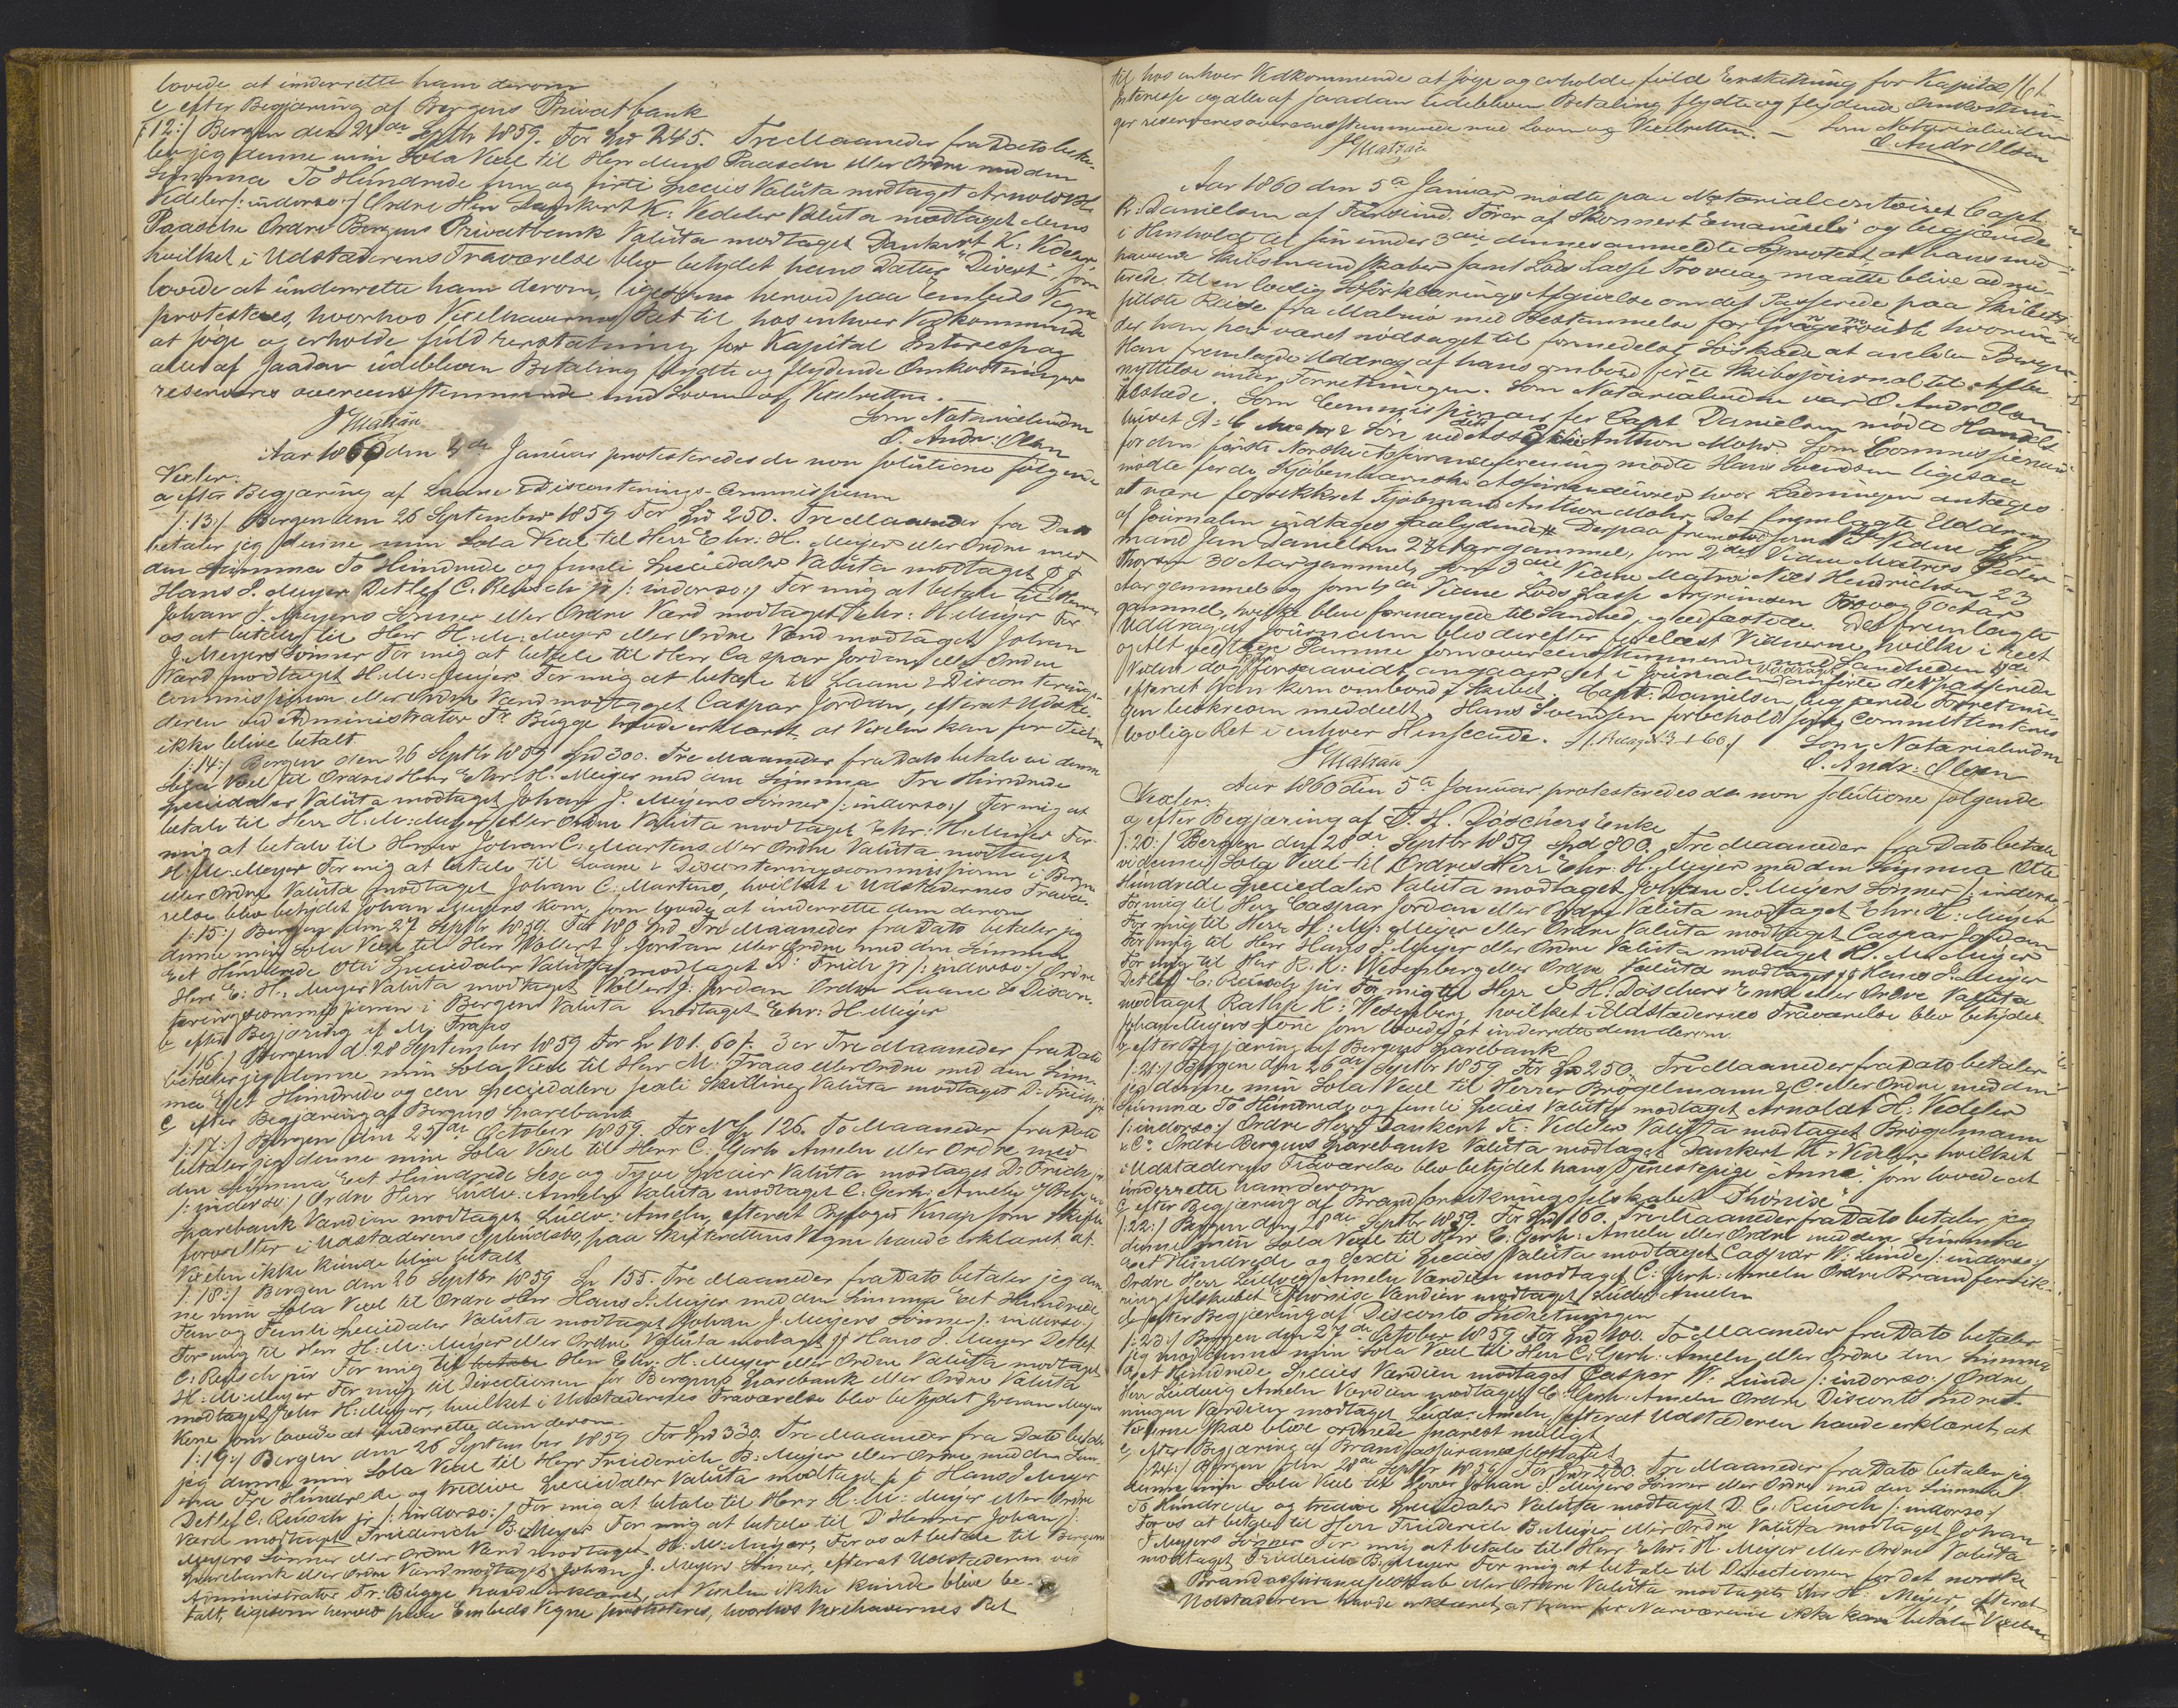 lovede at underrette ham derom
c, efter Begjæring af Bergens Privatbank
/:12:/ Bergen den 24de Septbr 1859. For Spd 245. Tre Maaneder fra Dato beta-
ler jeg denne min Sola Vexel til Herr Mens Paasche eller Ordre med den
Summa To Hundrede fem og firti Species Valuta modtaget Arnoldt H.
Vedeler /: indorso:/ Ordre Herr Dankert K: Vedeler Valuta modtaget Mens
Paasche Ordre Bergens Privatbank Valuta modtaget Dankert K: Vedeler,
hvilket i Udstæderens Fraværelse blev betydet hans Datter "Divert" som
lovede at underrette ham derom, ligesom herved paa Embeds Vegne
protesteres, hvorhos Vexelhavernes Ret til hos enhver Vedkommende
at søge og erholde fuld Erstatning for Kapital Interesse og
alt af saadan udebleven Betaling flydte og flydende Omkostninger
reserveres overeensstemmende med Loven og Vexelretten.
J Matzau
Som Notarialvidne
O. Andr: Olsen
Aar 1860 den 4de Januar protesteredes de non solutione følgende
Vexler:
a efter Begjæring af Laane & Disconterings-Commissionen
/:13:/ Bergen den 26 September 1859 For Spd 250. Tre Maaneder fra Dato
betaler jeg denne min Sola Vexel til Herr Ehr: H. Meyer eller Ordre med
den Summa To Hundrede og femti Speciedaler Valuta modtaget p p
Hans J. Meyer Detlef C. Reusch jr /: indorso:/ For mig at betale til Herrer
Johan J. Meyers Sønner eller Ordre Værd modtaget Ehr: H. Meyer For
os at betale til Herr H: M: Meyer eller Ordre Værd modtaget Johan
J. Meyers Sønner For mig at betale til Herr Caspar Jordan eller Ordre
Værd modtaget H. M: Meyer. For mig at betale til Laane & Discontering-
commissionen eller Ordre Værd modtaget Caspar Jordan, efterat Udstæ-
deren ved Administrator Fr Bugge havde erklæret at Vexelen kan for Tiden
ikke blive betalt
/:14:/ Bergen den 26 Septbr 1859 Spd 300. Tre Maaneder fra Dato betale vi denne
Sola Vexel til Ordres Herr Ehr. H. Meyer med den Summa Tre Hundrede
Speciedaler Valuta modtaget Johan J. Meyers Sønner /: indorso:/ For mig at
betale til Herr H: M: Meyer eller Ordre Valuta modtaget Ehr: H: Meyer For
mig at betale til Herr Johan C: Martens eller Ordre Valuta modtaget
H: M: Meyer For mig at betale til Laane & Disconteringscommissionen i Bergen
eller Ordre Valuta modtaget Johan C: Martens, hvilket i Udstædernes Fravæ-
relse blev betydet Johan Meyers Kone, som lovede at underrette dem derom
/:15:/ Bergen den 27 Septbr 1859. For 180 Spd Tre Maaneder fra Dato betaler jeg
denne min Sola Vexel til Herr Wollert J. Jordan eller Ordre med den Summa
Eet Hundrede Otti Speciedaler Valuta modtaget D: Frich jr /: indorso:/ Ordre
Herr E: H: Meyer Valuta modtaget Wollert J: Jordan Ordre Laane & Discon-
teringscommissionen i Bergen Valuta modtaget Ehr: H. Meyer
b efter Begjæring af M: Traps
/:16:/ Bergen d. 28 September 1859 For Spd 101. 60 s. 3er Tre Maaneder fra Dato
betaler jeg denne min Sola Vexel til Herr M: Traas eller Ordre med den Sum-
ma Eet Hundrede og een Speciedalere sexti Skilling Valuta modtaget D: Frich jr
c efter Begjæring af Bergens Sparebank
/:17:/ Bergen den 25de October 1859. For 126. To Maaneder fra Dato
betaler jeg denne min Sola Vexel til Herr C: Gerh Ameln eller Ordre med
den Summa Eet Hundrede Sex og Tyve Species Valuta modtaget D: Frich jr
/: indorso:/ Ordre Herr Ludv: Ameln Valuta modtaget C: Gerh: Ameln Bergens
Sparebank Værdien modtaget Ludv: Ameln, efterat Byfoged Knap som Skifte-
forvalter i Udstæderens Opbudsbo, paa Skifterettens Vegne havde erklæret at
Vexelen ikke kunde blive betalt
/:18:/ Bergen den 26 Septbr 1859 Sp 155. Tre Maaneder fra Dato betaler jeg den-
ne min Sola Vexel til Ordre Herr Hans J. Meyer med den Summa Eet Hundrede
Fem og Femti Speciedaler Valuta modtaget Johan J. Meyers Sønner /: indorso:/
For mig til Herr H: M: Meyer eller Ordre Valuta modtaget pp Hans J. Meyer Detlef
C: Reusch jr For mig til Herr Ehr: H: Meyer eller Ordre Valuta modtaget
H: M: Meyer For mig til Directionen for Bergens Sparebank eller Ordre Valuta
modtaget Ehr H: Meyer, hvilket i Udstædernes Fraværelse blev betydet Johan Meyers
Kone som lovede at underrette dem derom
/:19:/ Bergen den 26 September 1859 For Spd 330. Tre Maaneder fra Dato betaler
jeg denne min Sola Vexel til Herr Friederich B: Meyer eller Ordre med den Sum-
ma Tre Hundrede og tredive Speciedaler Valuta modtaget p p Hans J Meyer
Detlef C: Reusch jr /: indorso:/ For mig at betale til Herr H: M: Meyer eller Ordre
Værd modtaget Friederich B. Meyer For mig at betale til D'Herrer Johan J:
Meyers Sønner eller Ordre Værd modtaget H: M: Meyer, For os at betale til Bergens
Sparebank eller Ordre Værd modtaget Johan J. Meyers Sønner, efterat Udstæderen ved
Administrator Fr: Bugge havde erklæret, at Vexelen ikke kunde blive be-
talt, ligesom herved paa Embeds Vegne protesteres, hvorhos Vexelhavernes Ret
til hos enhver Vedkommende at søge og erholde fuld Erstatning for Kapital 161
Interesse og alt af saadan udebleven Betaling flydte og flydende Omkostnin-
ger reserveres overeensstemmende med Loven og Vexelretten. –
Som Notarialvidne
J Matzau
O Andr Olsen
Aar 1860 den 5te Januar mødte paa Notarialcontoiret Capt.
R: Danielsen af Farsund. Fører af Skonnert "Emanuel" og begjærede
i Henhold til sin under 3die dennes anmeldte Søprotest, at hans med-
havende Skibsmandskaber samt Lods Lasse Trovaag maatte blive admit-
terede til en lovlig Søforklarings Afgivelse om det Passerede paa Skibets
sidste Reise fra Malmø med Bestemmelse for hvorun-
der han har været nødsaget til formedelst Søskade at anløbe Bergen.
Han fremlagde Uddrag af hans ombord førte Skibsjournal til Afbe-
nyttelse under Forretningen. Som Notarialvidne var O Andr Olsen
tilstede. Som Commissionair for Capt. Danielsen mødte Handels-
huset A: C Mohr & Søn ved Anthon Mohr. Som Commissionair
for den første Norske Assuranceforening mødte Hans Svendsen ligesaa
mødte for de Kjøbenhavnske Assurandeurer hvor Ladningen antages
at være forsikkret Kjøbmand Anthon Mohr. Det fremlagte Uddrag
af Journalen indtages saalydende Derpaa fremstod som 1ste Vidne Styr-
mand Jan Danielsen 27 Aar gammel, som 2det Vidne Matros Peder
Thorsen 30 Aar gammel, som 3die Vidne Matros Nils Hendrichsen 23
Aar gammel og som 4de Vidne Lods Lasse Trovaag 60 Aar
gammel, hvilke bleve formanede til Sandhed og eedfæstede. Det fremlagte
Uddrag af Journalen blev derefter oplæst Vidnerne, hvilke i Eet
og Alt vedtoge Samme som overeensstemmende med Sandheden 4de
Vidne dog forsaavidt angaaer det i Journalen anførte det passerede
efterat han kom ombord i Skibet. Capt. Danielsen begjærede Forretnin-
gen beskreven meddeelt. Hans Svendsen forbeholdt sine Committenters
lovlige Ret i enhver Henseende.
Som Notarialvidne
J Matzau
O. Andr: Olsen
Aar 1860 den 5te Januar protesteredes de non solutione følgende
Vexler:
a, efter Begjæring af J. H. Döschers Enke
/:20:/ Bergen den 28de Septbr 1859 Spd 800. Tre Maaneder fra Dato betale
vi denne Sola Vexel til Ordres Herr Ehr. H. Meyer med den Summa Otte
Hundrede Speciedaler Valuta modtaget Johan J. Meyers Sønner /: indorso:/
For mig til Herr Caspar Jordan eller Ordre Valuta modtaget Ehr: H: Meyer
For mig til Herr H: M: Meyer eller Ordre Valuta modtaget Caspar Jordan
For mig til Herr Hans J. Meyer eller Ordre Valuta modtaget H. M. Meyer
For mig til Herr R. H: Wesenberg eller Ordre Valuta modtaget pp Hans J. Meyer
Detlef C: Reusch jr For mig til Herr J H: Döschers Enke eller Ordre Valuta
modtaget Rathje H: Wesenberg, hvilket i Udstædernes Fraværelse blev betydet
Johan Meyers Kone som lovede at underrette dem derom
b, efter Begjæring af Bergens Sparebank
/:21:/ Bergen den 26de Septbr 1859 For Sp 250. Tre Maaneder fra Dato betaler
jeg denne min Sola Vexel til Herrer Brögelmann & C: eller Ordre med den
Summa To Hundrede og femti Species Valuta modtaget Arnoldt H: Vedeler
/: indorso:/ Ordre Herr Dankert K: Vedeler Valuta modtaget Brögelmann
& Co Ordre Bergens Sparebank Valuta modtaget Dankert K: Vedeler hvilket
i Udstæderens Fraværelse blev betydet hans Tjenestepige "Anna" som lovede at
underrette ham derom
c, efter Begjæring af Brandforsikringsselskabet "Phönix"
/:22:/ Bergen den 28de Septbr 1859. For Spd 160. Tre Maaneder fra Dato betaler jeg
denne min Sola Vexel til Herr C: Gerh: Ameln eller Ordre med den Summa
Eet Hundrede og sexti Species Valuta modtaget Caspar W: Lunde /: indorso:/
Ordre Herr Ludvig Ameln Værdien modtaget C: Gerh: Ameln Ordre Brandforsik-
ringsselskabet Phönix Værdien modtaget Ludv. Ameln
d, efter Begjæring af Disconto Indretningen
/:23:/ Bergen den 27de October 1859 For Spd 100. To Maaneder fra Dato betaler
jeg mod denne min Sola Vexel til Herr C: Gerh: Ameln eller Ordre den Summa
Eet Hundrede Species Værdien modtaget Caspar W: Lunde /: indorso:/ Ordre
Herr Ludwig Ameln Værdien modtaget C: Gerh: Ameln Ordre Disconto Indret-
ningen Værdien modtaget Ludv: Ameln, efterat Udstæderen havde erklæret, at
Vexlerne skal blive ordnede snarest muligt
e, efter Begjæring af Brandassuranceselskabet
/:24:/ Bergen den 28de Septbr 1859 For Spd 230. Tre Maaneder fra Dato betaler jeg
denne min Sola Vexel til Herrer Johan J. Meyers Sønner eller Ordre med den Summa
To Hundrede og tredive Speciedaler Valuta modtaget D. C. Reusch /: indorso:/
For os at betale til Herr Friederich B. Meyer eller Ordre Valuta modtaget Johan
J Meyers Sønner For mig at betale til Herr Ehr: H. Meyer eller Ordre Valuta
modtaget Friederich B. Meyer For mig at betale til Directionen for det norske
Brandassuranceselskab eller Ordre Valuta modtaget Ehr H: Meyer, efterat
Udstæderen havde erklæret, at han for Nærværende ikke kan betale Vexlen